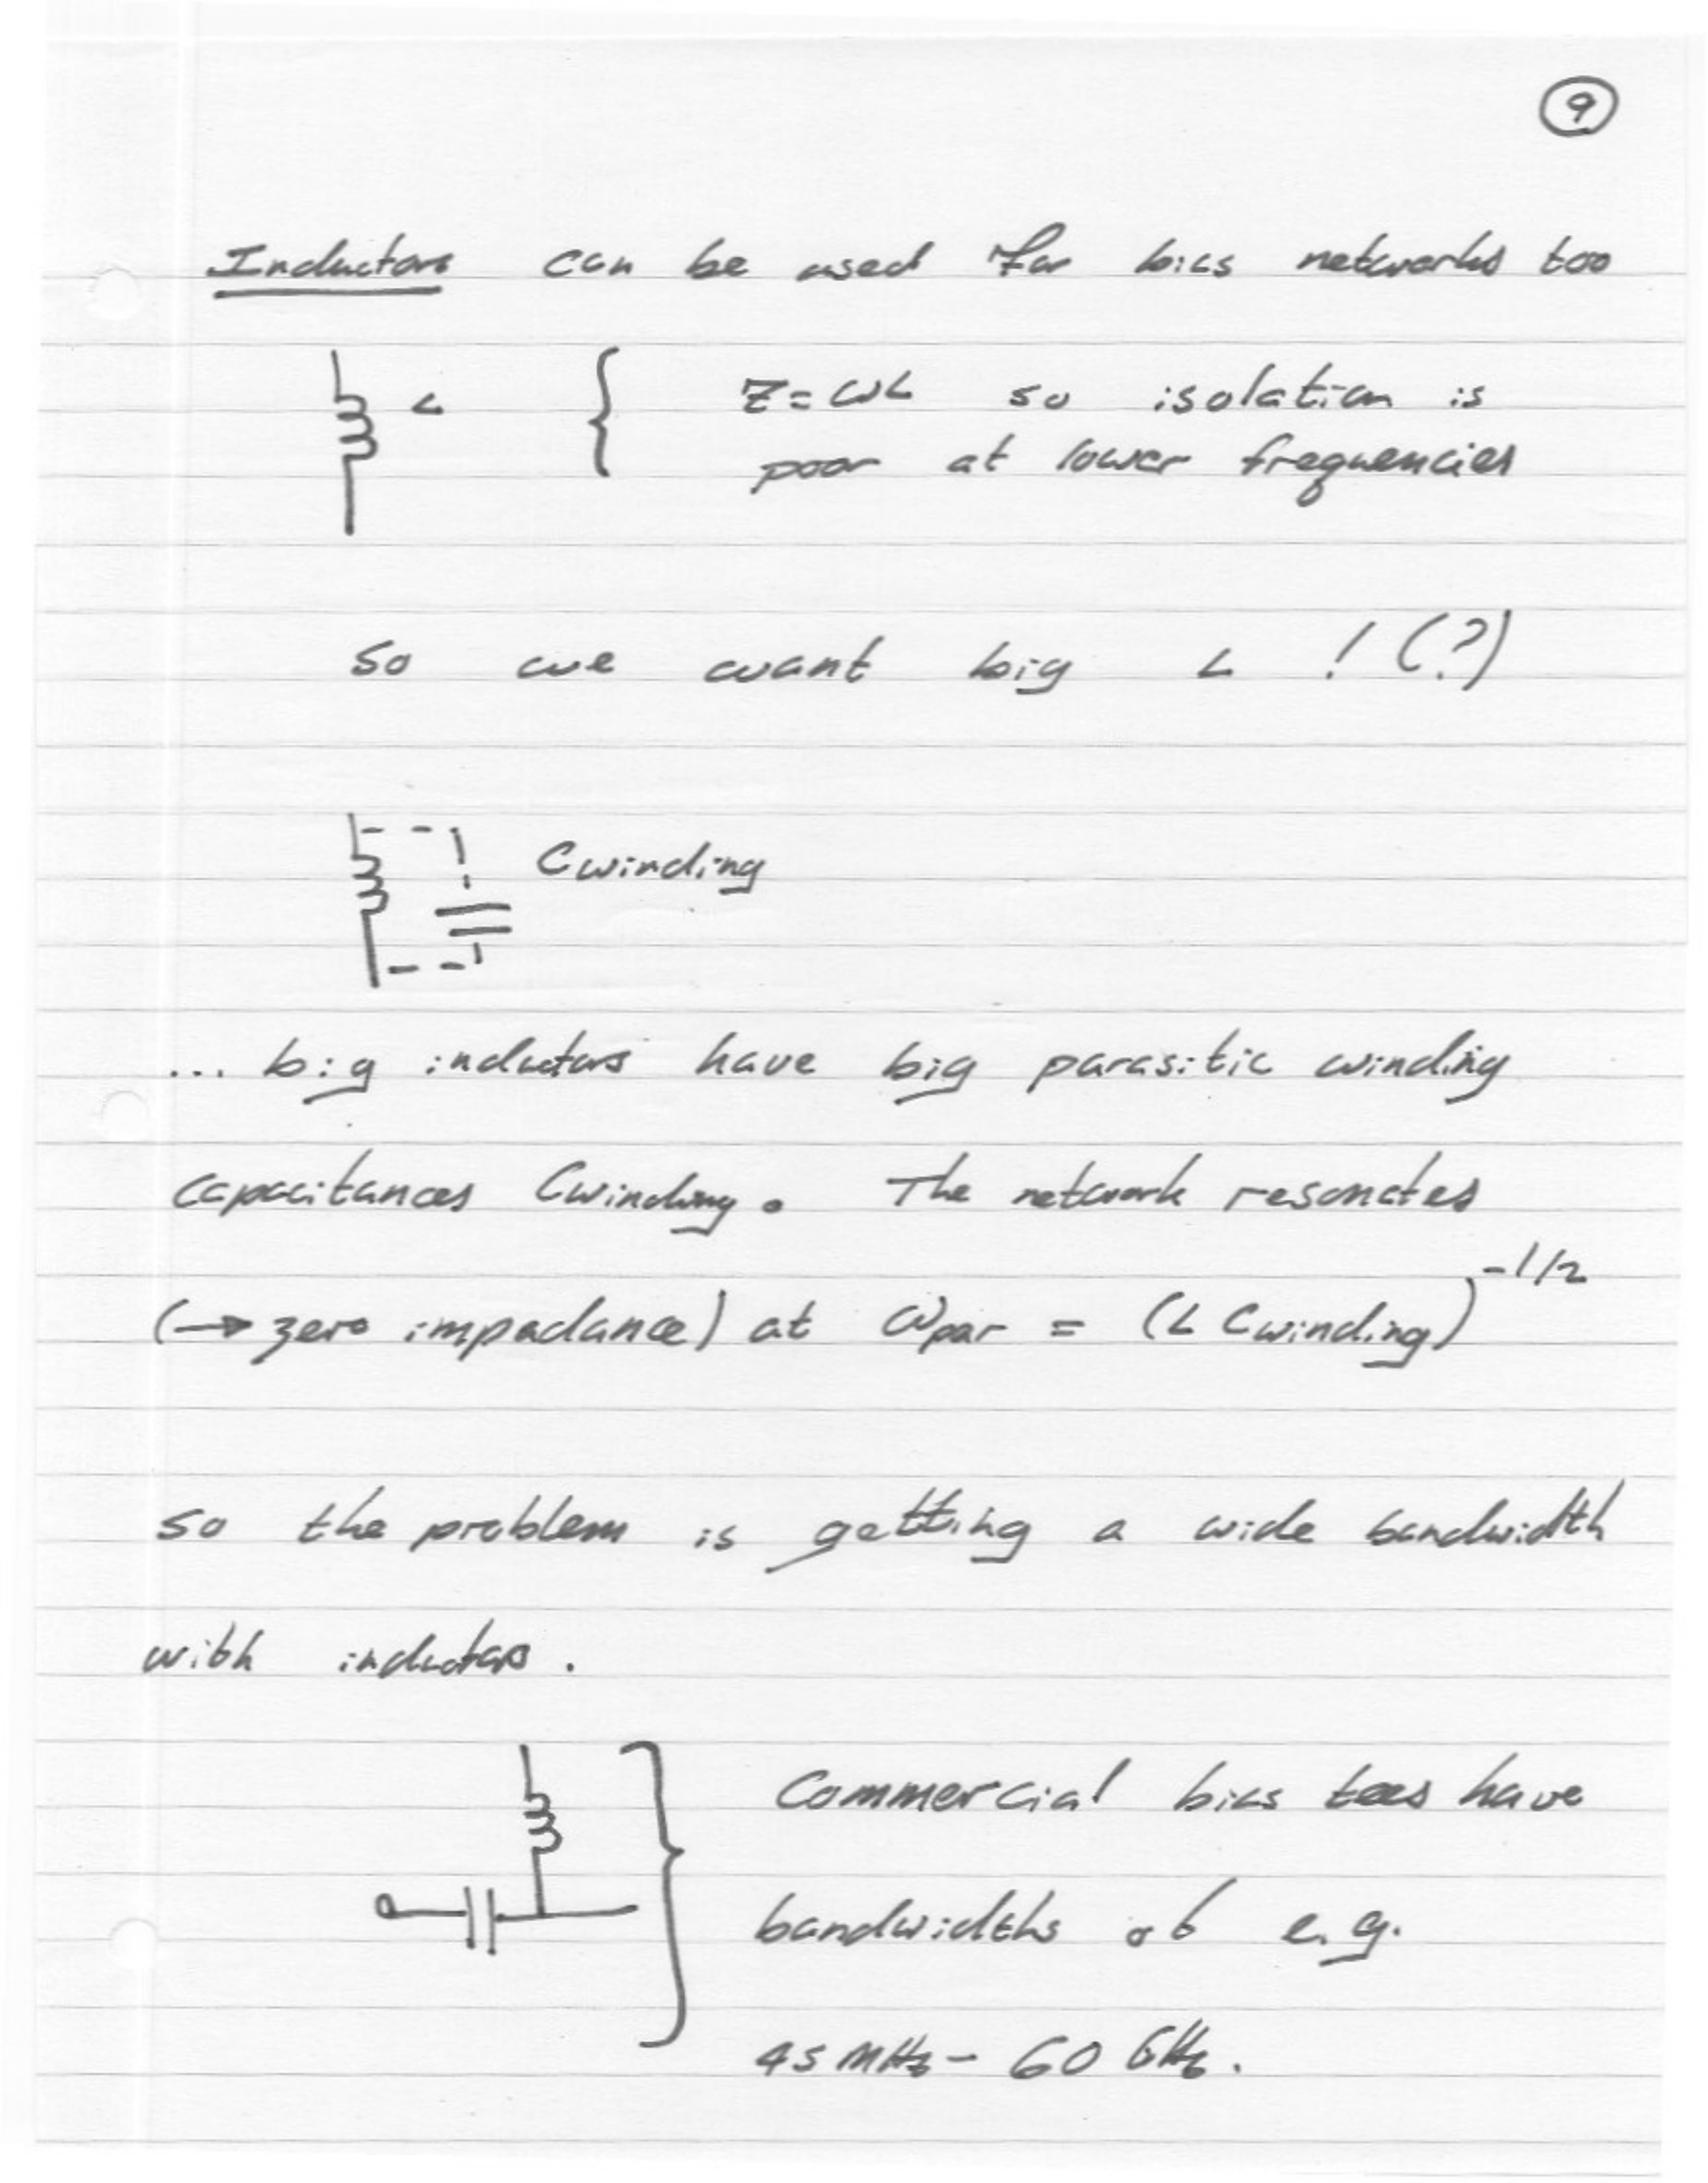 9
Inductors can be used for bias networks too
L
Z = ωL so isolation is
poor at lower frequencies
so we want big L ! (?)
Cwinding
... big inductors have big parasitic winding
capacitances Cwinding. The network resonates
(→ zero impedance) at ωpar = (L Cwinding)^-1/2
so the problem is getting a wide bandwidth
with inductors.
Commercial bias tees have
bandwidths of e.g.
45 MHz - 60 GHz.